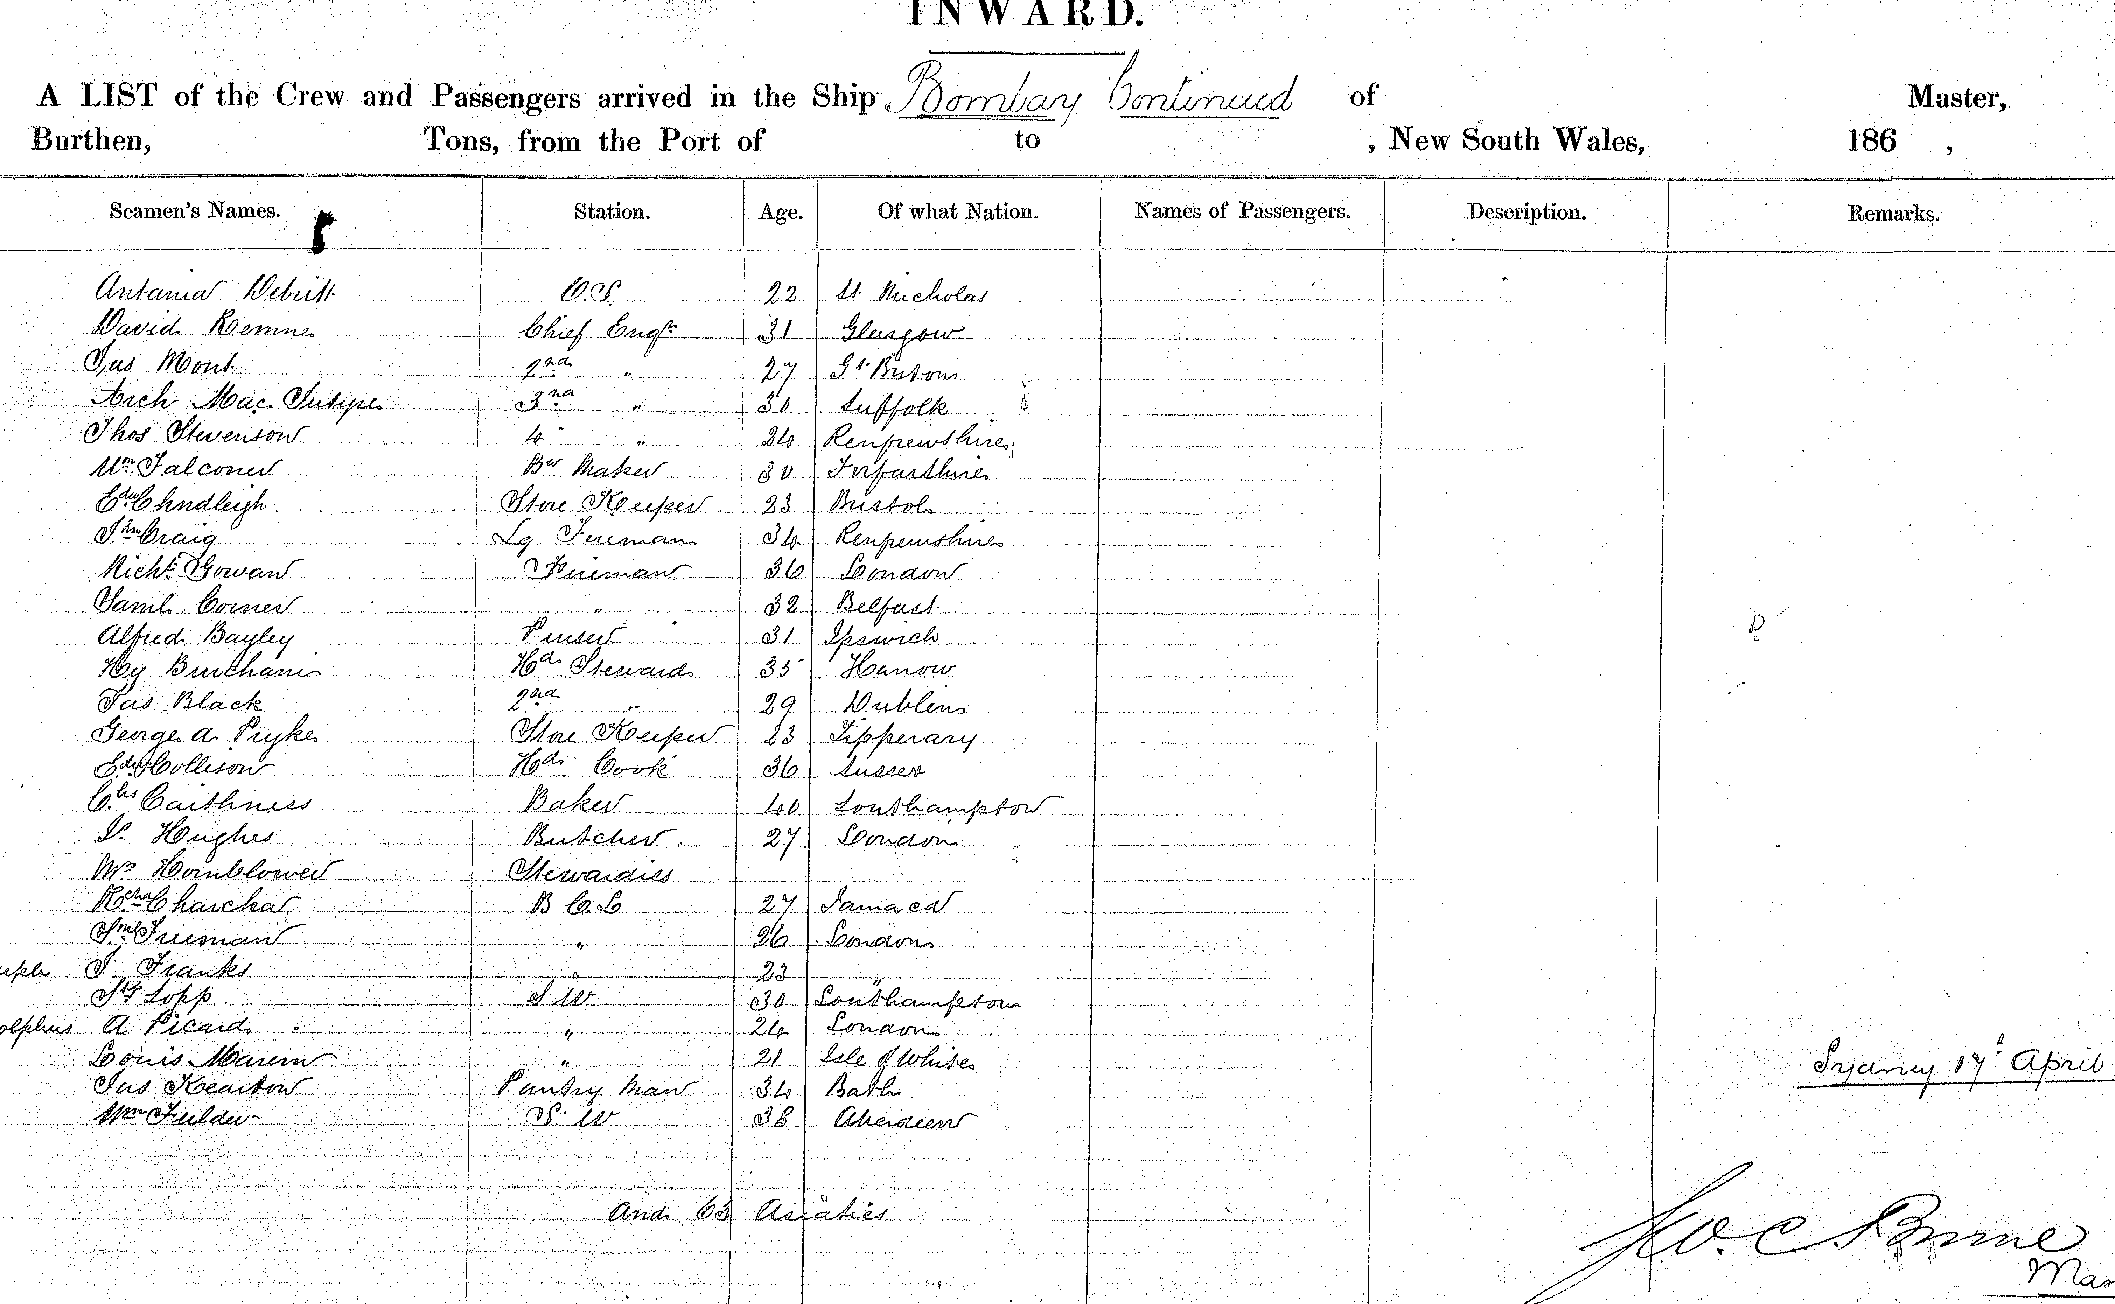 INWARD.
A LIST of the Crew and Passengers arrived in the Ship Bombay Continued of Master,
Burthen, Tons, from the Port of to , New South Wales, 186 ,
Seamen's Names. Station. Age. Of what Nation. Names of Passengers. Description. Remarks.
O.S. 22 St Nicholas
David Chief Engr 31 Glasgow
Jas Mont 2nd " 27
Arch Mac 3rd " 30 Suffolk
Thos Stevenson 4 " 24 Renfrewshire
Wm Falconer Br Maker 30 Forfarshire
Edw Chudleigh Store Keeper 23 Bristol
Craig Lg Fireman 34 Renfrewshire
Michl Gowan Fireman 36 London
Saml Corner " 32 Belfast
Alfred Bayley Purser 31 Ipswich
Hy Burcham Hd Steward 35 Harrow
Jas Black 2nd " 29 Dublin
George A Pryke Store Keeper 23 Tipperary
Edw Collison Hd Cook 36 Sussex
Chs Caithness Baker 40 Southampton
Hughes Butcher 27 London
Mrs Hornblower Stewardies
B C.S 27 Jamaca
Saml Freeman " 26 London
J Franks " 23 "
Lopp S W 30 Southampton
olphus A Picard " 24 London
Louis " 21 Isle of White
Jas Kearton Pantry Man 34 Bath
Wm Fielder S. W 38 Aberdeen
Sydney 17 April
And 63 Asiatics